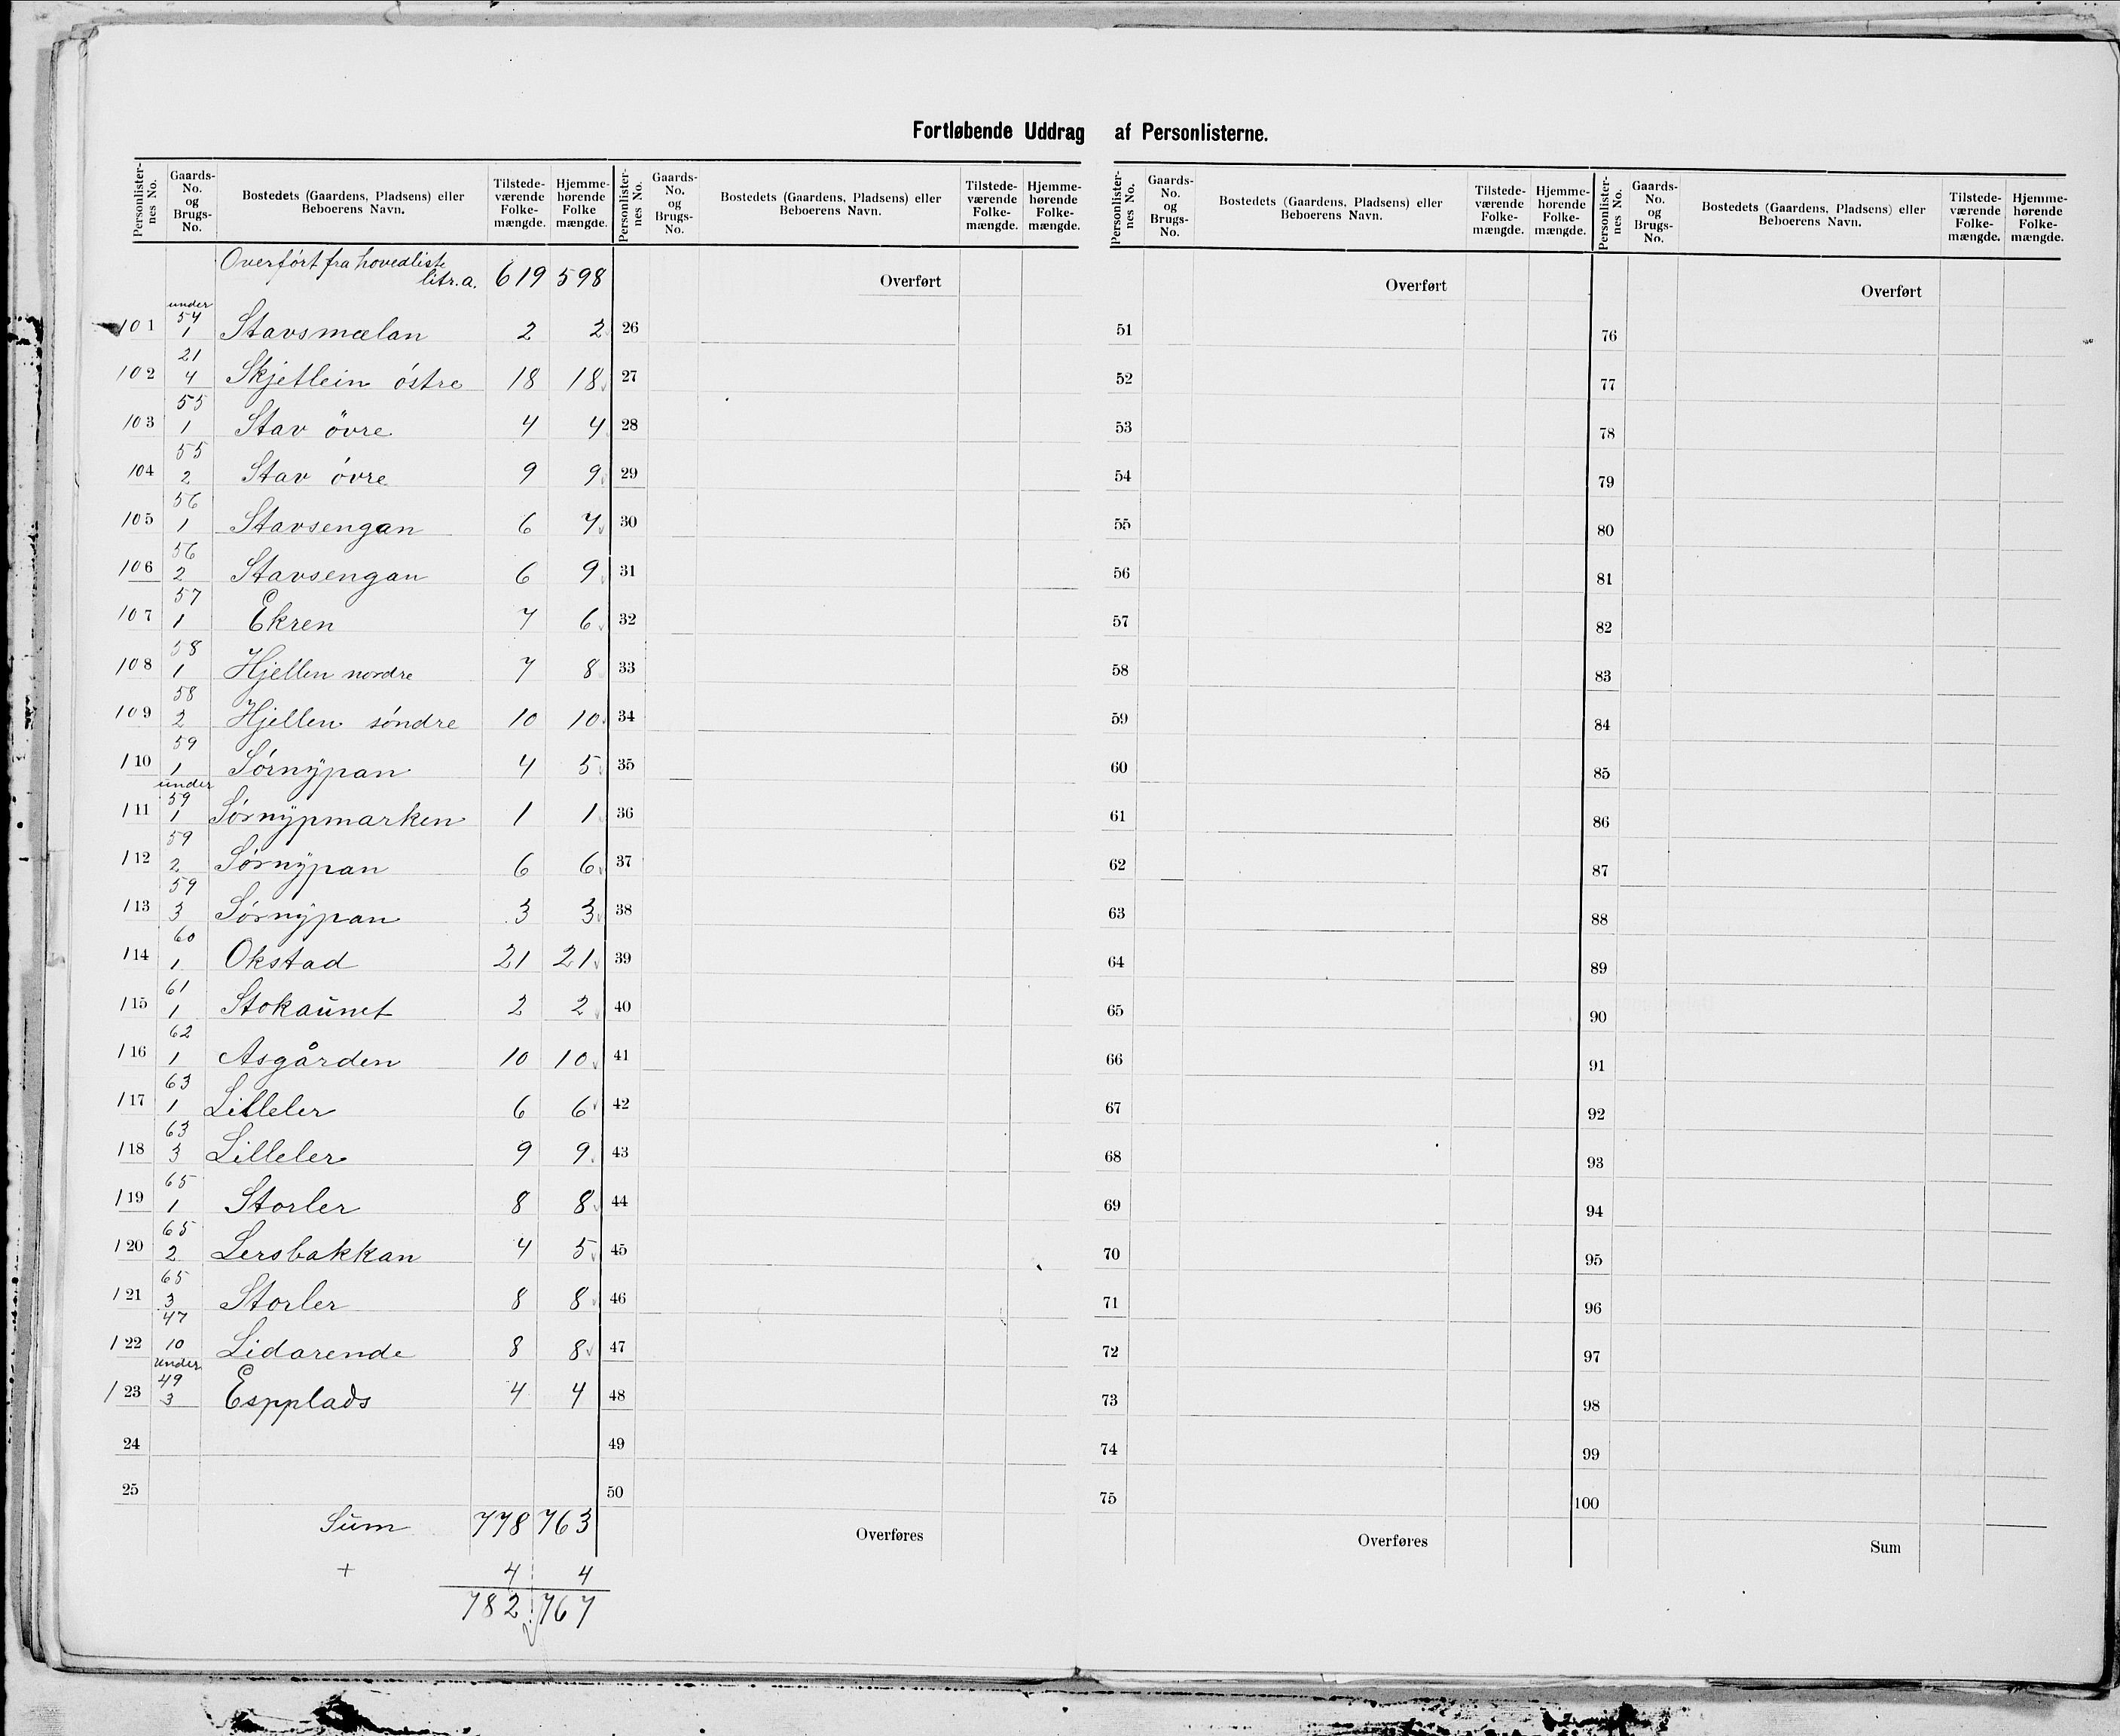 Fortløbende Uddrag af Personlisterne.
Personlister-nes No. Gaards-No. og Brugs-No. Bostedets (Gaardens, Pladsens) eller Beboerens Navn. Tilstede-værende Folke-mængde. Hjemme-hørende Folke mængde. Personlister-nes No. Gaards-No. og Brugs-No. Bostedets (Gaardens, Pladsens) eller Beboerens Navn. Tilstede-værende Folke-mængde. Hjemme-hørende Folke-mængde. Personlister-nes No. Gaards-No. og Brugs-No. Bostedets (Gaardens, Pladsens) eller Beboerens Navn. Tilstede-værende Folke-mængde. Hjemme-hørende Folke-mængde. Personlister-nes No. Gaards-No. og Brugs-No. Bostedets (Gaardens, Pladsens) eller Beboerens Navn. Tilstede-værende Folke-mængde. Hjemme-hørende Folke-mængde.
Overført fra hovedliste litr. a. 619 598 Overført Overført Overført
101 under 54 1 Stavsmælan 2 2 26 51 76
102 21 4 Skjetlein østre 18 18 27 52 77
103 55 1 Stav övre 4 4 28 53 78
104 55 2 Stav óvre 9 9 29 54 79
105 56 1 Stavsengan 6 7 30 55 80
106 56 2 Stavsengan 6 9 31 56 81
107 57 1 Ekren 7 6 32 57 82
108 58 1 Hjellen nordre 7 8 33 58 83
109 58 2 Hjellen søndre 10 10 34 59 84
110 59 1 Sørnÿpan 4 5 35 60 85
111 under 59 1 Sørnÿpmarken 1 1 36 61 86
112 59 2 Sørnÿpan 6 6 37 62 87
113 59 3 Sørnÿpan 3 3 38 63 88
114 60 1 Okstad 21 21 39 64 89
115 61 1 Stokaunet 2 2 40 65 90
116 62 1 Asgården 10 10 41 66 91
117 63 1 Lilleler 6 6 42 67 92
118 63 3 Lilleler 9 9 43 68 93
119 65 1 Storler 8 8 44 69 94
120 65 2 Lersbakkan 4 5 45 70 95
121 65 3 Storler 8 8 46 71 96
122 47 10 Lidarende 8 8 47 72 97
123 under 49 3 Espplads 4 4 48 73 98
24 49 74 99
25 50 75 100
Sum 778 763 Overføres Overføres Sum
+ 4 4
782 767